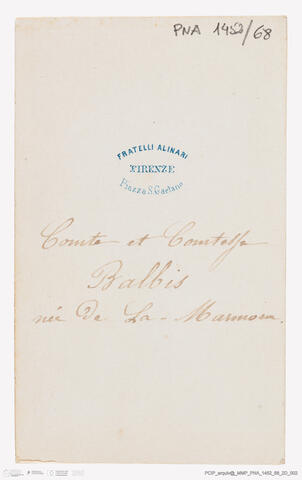 PNA 1452/68
FRATELLI ALINARI
FIRENZE
Piazza S. Gaetano
Comte et Comtesse
Balbis
née De La-Marmora.
PCIP_arquiv@_MNP_PNA_1452_68_2D_002